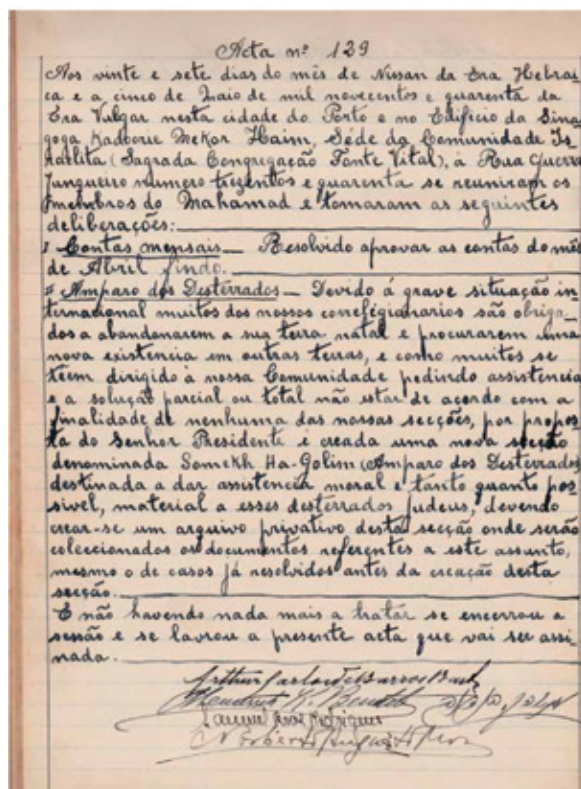 Acta nº 129
Aos vinte e sete dias do mês de Nissan da Era Hebrai
ca e a cinco de Maio de mil novecentos e quarenta da
Era Vulgar nesta cidade do Porto e no Edificio da Sina
goga Kadoorie Mekor Haim, Séde da Comunidade Is
raelita (Sagrada Congregação Fonte Vital), á Rua Guerra
Junqueiro numero trezentos e quarenta se reuniram os
membros do Mahamad e tomaram as seguintes
deliberações:
Contas mensais — Resolvido aprovar as contas do mês
de Abril findo.
Amparo dos Desterrados — Devido á grave situação in
ternacional muitos dos nossos correligionarios são obriga
dos a abandonarem a sua terra natal e procurarem uma
nova existencia em outras terras, e como muitos se
teem dirigido à nossa Comunidade pedindo assistencia
e a solução parcial ou total não estar de acordo com a
finalidade de nenhuma das nossas secções, por propos
ta do Senhor Presidente é creada uma nova secção
denominada Somekh Ha-Golim (Amparo dos Desterrados)
destinada a dar assistencia moral e tanto quanto pos
sivel, material a esses desterrados judeus, devendo
crear-se um arquivo privativo desta secção onde serão
coleccionados os documentos referentes a este assunto,
mesmo o de casos já resolvidos antes da creação desta
secção.
E não havendo nada mais a tratar se encerrou a
sessão e se lavrou a presente acta que vai ser assi
nada.
Arthur Carlos de Barros Basto